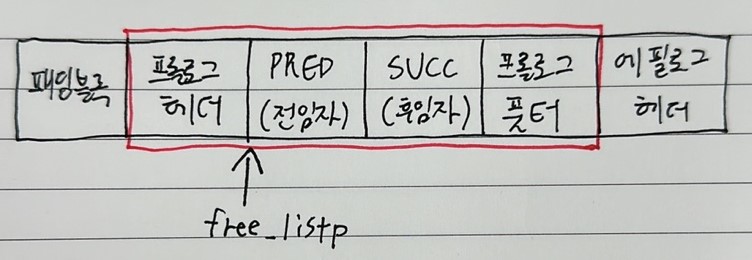 패딩블록
프롤로그
헤더
PRED
(전임자)
SUCC
(후임자)
프롤로그
풋터
에필로그
헤더
free_listp